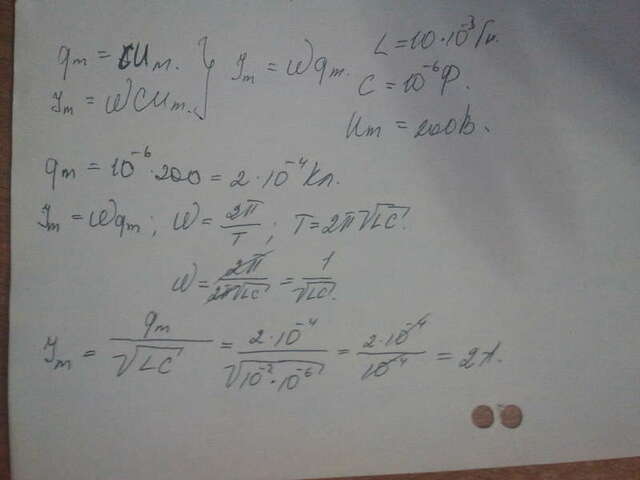 qm = CUm. } Ym = ωqm.
Ym = ωCUm.
L = 10·10⁻³Гн.
C = 10⁻⁶Ф.
Um = 200В.
qm = 10⁻⁶·200 = 2·10⁻⁴Кл.
Ym = ωqm; ω = 2π/T; T = 2π√LC.
ω = 2π/2π√LC = 1/√LC.
Ym = qm/√LC = 2·10⁻⁴/√10⁻²·10⁻⁶ = 2·10⁻⁴/10⁻⁴ = 2А.